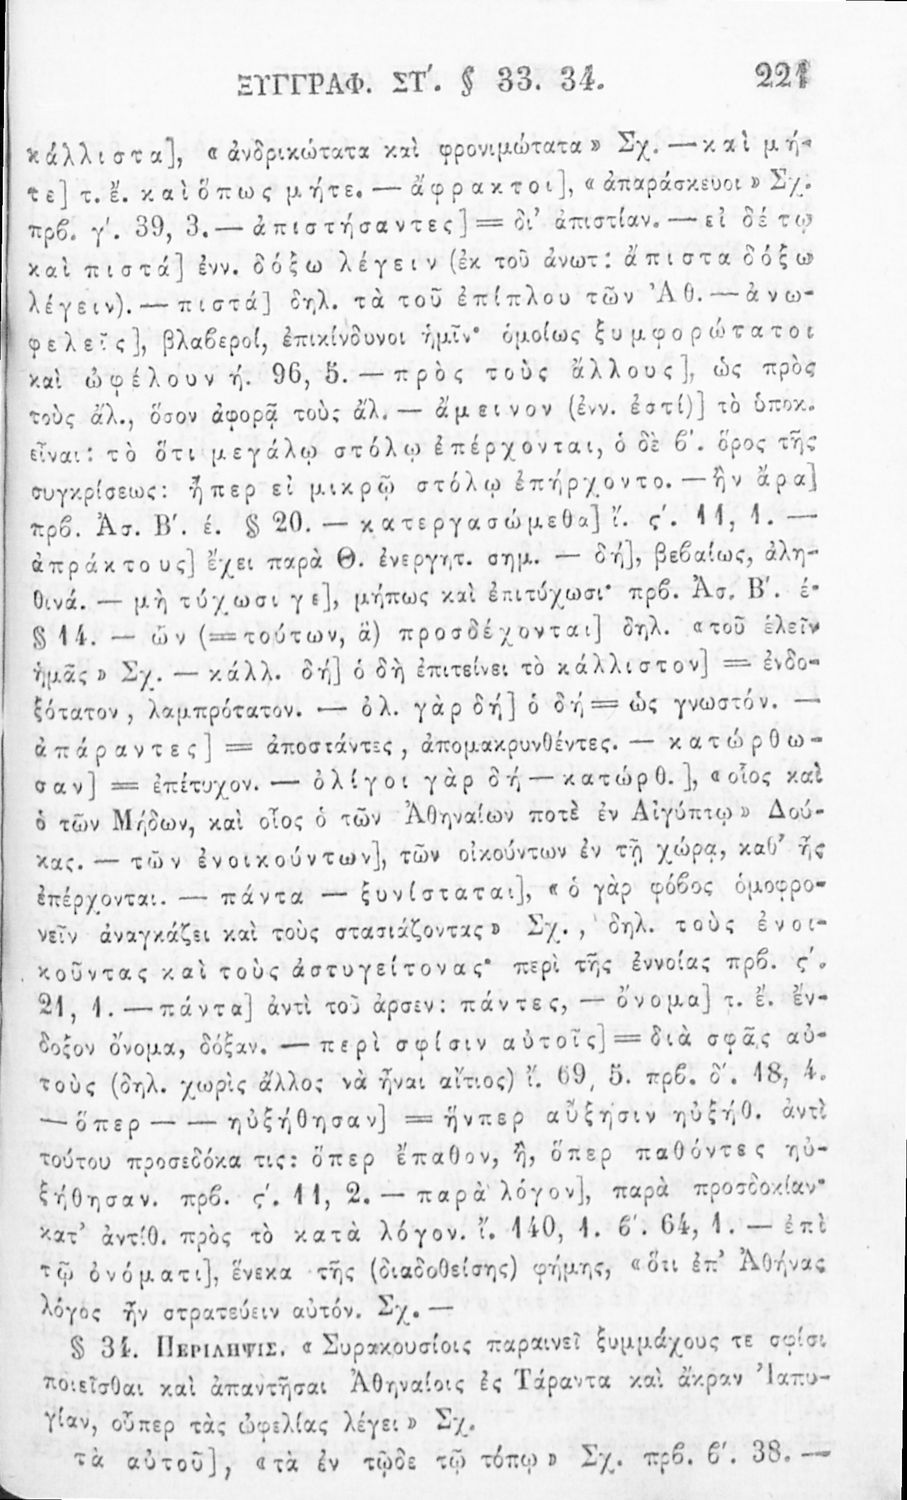 ΞΥΓΓΡΑΦ. ΣΤ΄. § 33. 34. 221
κάλλιστα], « ἀνδρικώτατα καὶ φρονιμώτατα» Σχ. — καὶ μή-
τε] τ. ἔ. καὶ ὅπως μήτε. — ἄφρακτοι], « ἀπαράσκευοι » Σχ.
πρβ. γ΄. 39, 3. — ἀπιστήσαντες] = δι' ἀπιστίαν. — εἰ δέ τῳ
καὶ πιστά] ἐνν. δόξω λέγειν (ἐκ τοῦ ἀνωτ: ἄπιστα δόξω
λέγειν). — πιστά] δηλ. τὰ τοῦ ἐπίπλου τῶν Ἀθ. — ἀνω-
φελεῖς], βλαβεροί, ἐπικίνδυνοι ἡμῖν· ὁμοίως ξυμφορώτατοι
καὶ ὠφέλουν ή. 96, 5. — πρὸς τοὺς ἄλλους], ὡς πρὸς
τοὺς ἄλ., ὅσον ἀφορᾷ τοὺς ἄλ. — ἄμεινον (ἐνν. ἐστί)] τὸ ὑποκ.
εἶναι: τὸ ὅτι μεγάλῳ στόλῳ ἐπέρχονται, ὁ δὲ β΄. ὅρος τῆς
συγκρίσεως: ἤπερ εἰ μικρῷ στόλῳ ἐπήρχοντο. — ἢν ἄρα]
πρβ. Ἀσ. Β΄. έ. § 20. — κατεργασώμεθα] ἴ. ς΄. 11, 1. —
ἀπράκτους] ἔχει παρὰ Θ. ἐνεργητ. σημ. — δή], βεβαίως, ἀλη-
θινά. — μὴ τύχωσι γε], μήπως καὶ ἐπιτύχωσι· πρβ. Ἀσ. Β΄. έ·
§ 14. — ὧν (=τούτων, ἃ) προσδέχονται] δηλ. «τοῦ ἑλεῖν
ἡμᾶς » Σχ. — κάλλ. δή] ὁ δὴ ἐπιτείνει τὸ κάλλιστον] = ἐνδο-
ξότατον, λαμπρότατον. — ὀλ. γὰρ δή] ὁ δή = ὡς γνωστόν. —
ἀπάραντες] = ἀποστάντες, ἀπομακρυνθέντες. — κατώρθω-
σαν] = ἐπέτυχον. — ὀλίγοι γὰρ δή — κατώρθ.], «οἷος καὶ
ὁ τῶν Μήδων, καὶ οἷος ὁ τῶν Ἀθηναίων ποτὲ ἐν Αἰγύπτῳ» Δού-
κας. — τῶν ἐνοικούντων], τῶν οἰκούντων ἐν τῇ χώρᾳ, καθ' ἧς
ἐπέρχονται. — πάντα — ξυνίσταται], « ὁ γὰρ φόβος ὁμοφρο-
νεῖν ἀναγκάζει καὶ τοὺς στασιάζοντας» Σχ., δηλ. τοὺς ἐνοι-
κοῦντας καὶ τοὺς ἀστυγείτονας· περὶ τῆς ἐννοίας πρβ. ς΄.
21, 1. — πάντα] ἀντὶ τοῦ ἀρσεν: πάντες, — ὄνομα] τ. ἔ. ἔν-
δοξον ὄνομα, δόξαν. — περὶ σφίσιν αὐτοῖς] = διὰ σφᾶς αὐ-
τοὺς (δηλ. χωρὶς ἄλλος νὰ ἦναι αἴτιος) ἴ. 69, 5. πρβ. δ΄. 18, 4.
— ὅπερ — — ηὐξήθησαν] = ἥνπερ αὔξησιν ηὐξήθ. ἀντὶ
τούτου προσεδόκα τις: ὅπερ ἔπαθον, ἢ, ὅπερ παθόντες ηὐ-
ξήθησαν. πρβ. ς΄. 11, 2. — παρὰ λόγον], παρὰ προσδοκίαν·
κατ' ἀντίθ. πρὸς τὸ κατὰ λόγον. ἴ. 140, 1. β΄. 64, 1. — ἐπὶ
τῷ ὀνόματι], ἕνεκα τῆς (διαδοθείσης) φήμης, «ὅτι ἐπ' Ἀθήνας
λόγος ἦν στρατεύειν αὐτόν. Σχ. —
§ 34. ΠΕΡΙΛΗΨΙΣ. « Συρακουσίοις παραινεῖ ξυμμάχους τε σφίσι
ποιεῖσθαι καὶ ἀπαντῆσαι Ἀθηναίοις ἐς Τάραντα καὶ ἄκραν Ἰαπυ-
γίαν, οὗπερ τὰς ὠφελίας λέγει» Σχ.
τὰ αὐτοῦ], «τὰ ἐν τῷδε τῷ τόπῳ » Σχ. πρβ. β΄. 38. —